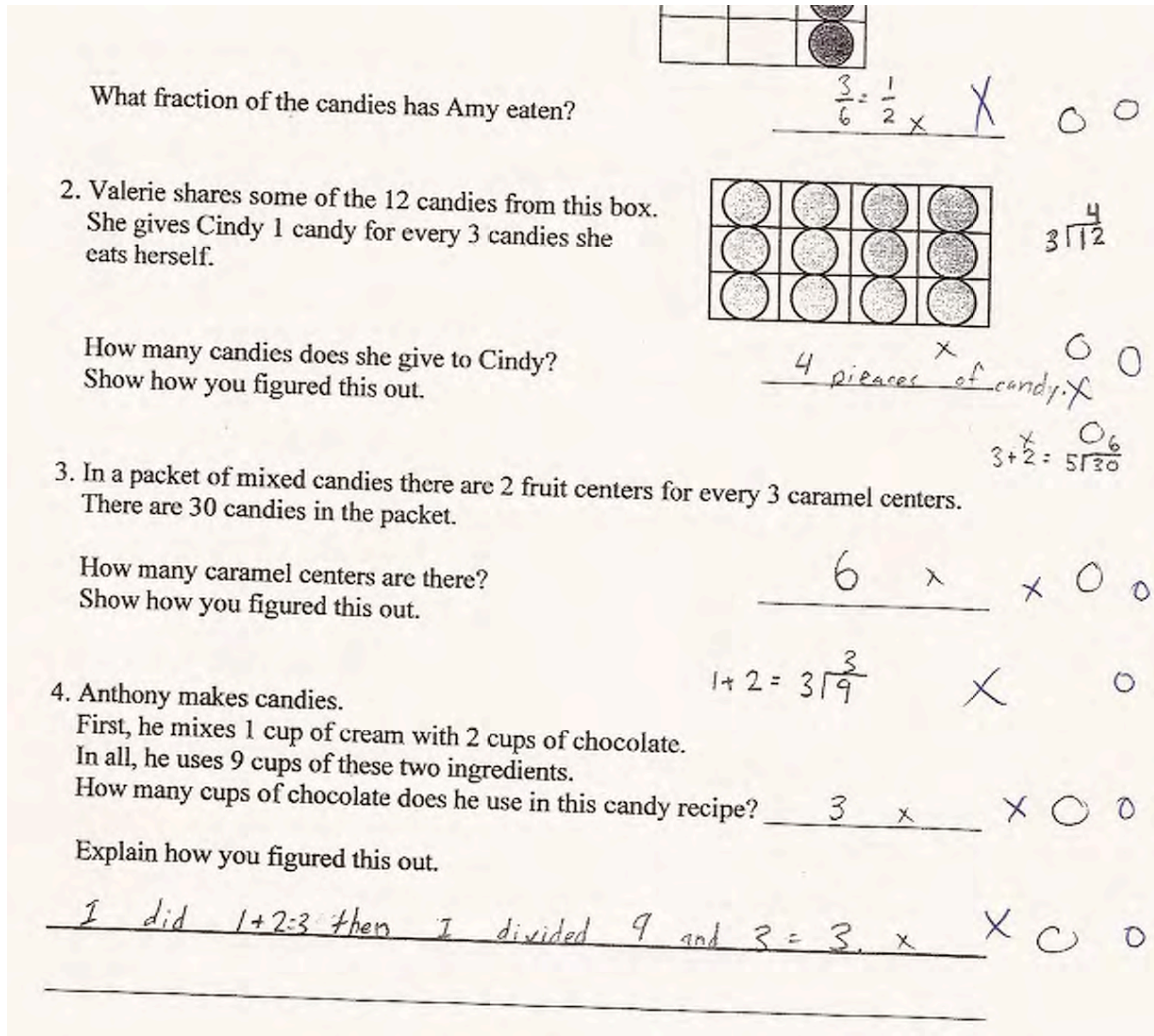 3/6 = 1/2 x X O O
What fraction of the candies has Amy eaten?
2. Valerie shares some of the 12 candies from this box.
She gives Cindy 1 candy for every 3 candies she
eats herself.
4
3⟌12
How many candies does she give to Cindy?
Show how you figured this out.
4 pieaces of candy. x X O O
3+2= 5⟌30 6 x O
3. In a packet of mixed candies there are 2 fruit centers for every 3 caramel centers.
There are 30 candies in the packet.
How many caramel centers are there?
Show how you figured this out.
6 x x O O
3
1+2= 3⟌9 X O
4. Anthony makes candies.
First, he mixes 1 cup of cream with 2 cups of chocolate.
In all, he uses 9 cups of these two ingredients.
How many cups of chocolate does he use in this candy recipe? 3 x X O O
Explain how you figured this out.
I did 1+2=3 then I divided 9 and 3 = 3. x X O O